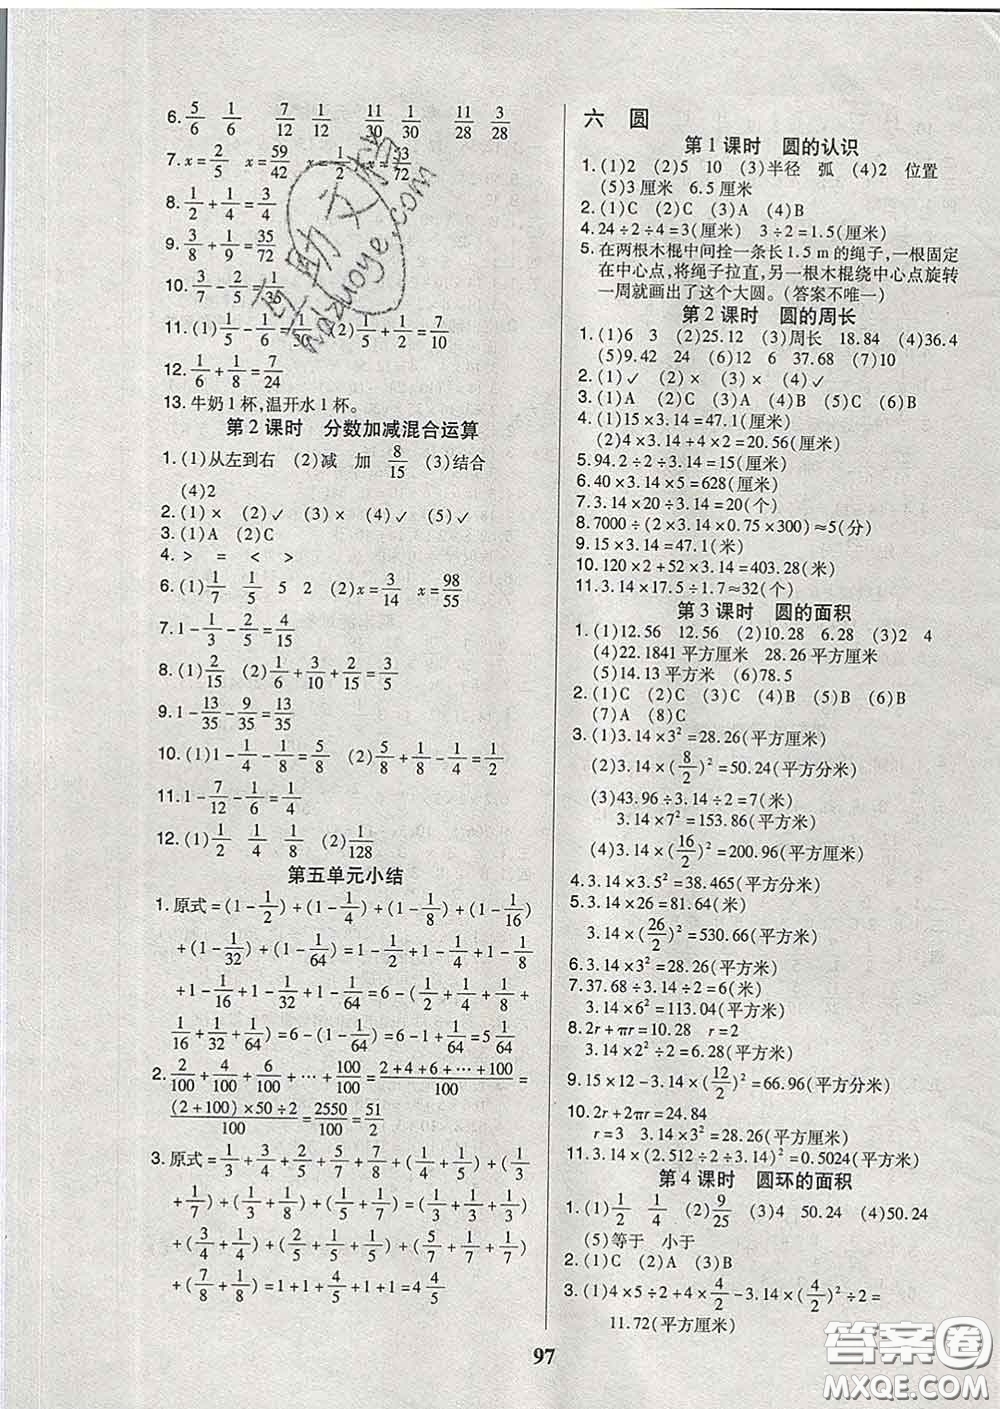 6. 5/6 1/6 7/12 1/12 11/30 1/30 11/28 3/28
7. x=2/5 x=59/42 x=1/2 x=
8. 1/2+1/4=3/4
9. 3/8+1/9=35/72
10. 3/7-2/5=1/35
11. (1)1/5-1/6=1/30 (2)1/5+1/2=7/10
12. 1/6+1/8=7/24
13. 牛奶1杯,温开水1杯。
第2课时 分数加减混合运算
1. (1)从左到右 (2)减 加 8/15 (3)结合
(4)2
2. (1)× (2)✓ (3)× (4)✓ (5)✓
3. (1)A (2)C
4. > = < >
6. (1)1/7 1/5 5 2 (2)x=3/14 x=98/55
7. 1-1/3-2/5=4/15
8. (1)2/15 (2)1/5+3/10+1/10=3/5
9. 1-13/35-9/35=13/35
10. (1)1-1/4-1/8=5/8 (2)5/8+1/8-1/4=1/2
11. 1-7/12-1/6=1/4
12. (1)1/2 1/4 1/8 (2)1/128
第五单元小结
1. 原式=(1-1/2)+(1-1/4)+(1-1/8)+(1-1/16)
+(1-1/32)+(1-1/64)=1-1/2+1-1/4+1-1/8
+1-1/16+1-1/32+1-1/64=6-(1/2+1/4+1/8+
1/16+1/32+1/64)=6-(1-1/64)=6-1+1/64=5 1/64
2. 2/100+4/100+6/100+…+100/100=(2+4+6+…+100)/100=
(2+100)×50÷2/100=2550/100=51/2
3. 原式=1/3+2/4+4/5+5/7+7/8+(1/4+1/5)+(1/3+
1/7)+(1/8+1/5+1/7)=(1/3+1/3)+(2/4+
1/4)+(4/5+1/5)+(5/7+1/7)+(7/8+1/8)
六 圆
第1课时 圆的认识
1. (1)2 (2)5 10 (3)半径 弧 (4)2 位置
(5)3厘米 6.5厘米
2. (1)C (2)C (3)A (4)B
4. 24÷2÷4=3(厘米) 3÷2=1.5(厘米)
5. 在两根木棍中间拴一条长1.5m的绳子,一根固定
在中心点,将绳子拉直,另一根木棍绕中心点旋转
一周就画出了这个大圆。(答案不唯一)
第2课时 圆的周长
1. (1)6 3 (2)25.12 (3)周长 18.84 (4)36.4
(5)9.42 24 (6)12 6 37.68 (7)10
2. (1)✓ (2)× (3)× (4)✓
3. (1)A (2)C (3)C (4)B
4. (1)15×3.14=47.1(厘米)
(2)4×3.14+4×2=20.56(厘米)
5. 94.2÷2÷3.14=15(厘米)
6. 40×3.14×5=628(厘米)
7. 3.14×20÷3.14=20(个)
8. 7000÷(2×3.14×0.75×300)≈5(分)
9. 15×3.14=47.1(米)
10. 120×2+52×3.14=403.28(米)
11. 3.14×17.5÷1.7≈32(个)
第3课时 圆的面积
1. (1)12.56 12.56 (2)10.28 6.28 (3)2 4
(4)22.1841平方厘米 28.26平方厘米
(5)14.13平方厘米 (6)78.5
2. (1)C (2)C (3)C (4)B (5)B (6)B
(7)A (8)C
3. (1)3.14×3²=28.26(平方厘米)
(2)3.14×(8/2)²=50.24(平方分米)
(3)43.96÷3.14÷2=7(米)
3.14×7²=153.86(平方米)
(4)3.14×(16/2)²=200.96(平方厘米)
4. 3.14×3.5²=38.465(平方分米)
5. 3.14×26=81.64(米)
3.14×(26/2)²=530.66(平方米)
6. 3.14×3²=28.26(平方米)
7. 37.68÷3.14÷2=6(米)
3.14×6²=113.04(平方米)
8. 2r+πr=10.28 r=2
3.14×2²÷2=6.28(平方米)
9. 15×12-3.14×(12/2)²=66.96(平方分米)
10. 2r+2πr=24.84
r=3 3.14×3²=28.26(平方厘米)
11. 3.14×(2.512÷2÷3.14)²=0.5024(平方米)
第4课时 圆环的面积
1. (1)1/2 1/4 (2)9/25 (3)4 50.24 (4)50.24
(5)等于 小于
2. (1)C (2)A (3)B
3. (1)4×5÷2+4×4/2-3.14×(4/2)²÷2=
11.72(平方厘米)
97
答案圈
MXQE.COM